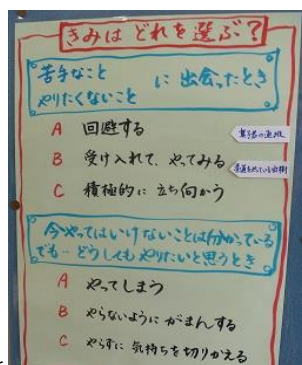 きみは どれを選ぶ?
苦手なこと
やりたくないこと に 出会ったとき
A 回避する
B 受け入れて、やってみる
C 積極的に 立ち向かう
今やってはいけないことは分かっている
でも…どうしてもやりたいと思うとき
A やってしまう
B やらないように がまんする
C やらずに 気持ちを切りかえる